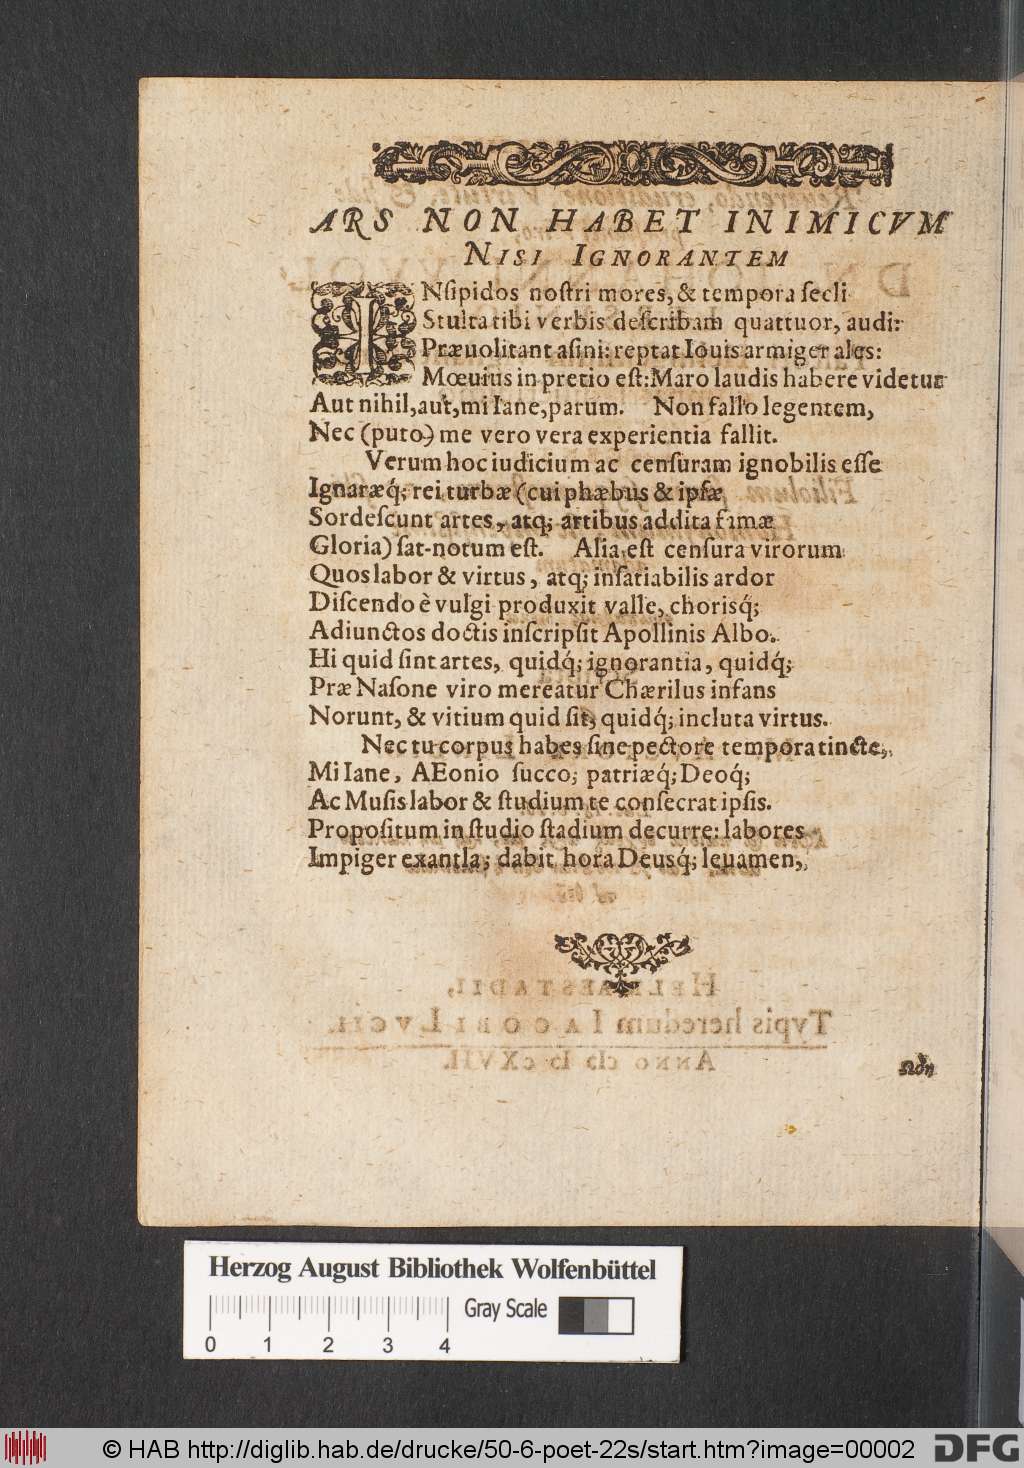 ARS NON HABET INIMICVM
NISI IGNORANTEM
INſipidos noſtri mores, & tempora ſecli
Stulta tibi verbis deſcribam quattuor, audi:
Præuolitant aſini: reptat Iouis armiger ales:
Mœuius in pretio eſt: Maro laudis habere videtur
Aut nihil, aut, mi Iane, parum. Non fallo legentem,
Nec (puto) me vero vera experientia fallit.
Verum hoc iudicium ac cenſuram ignobilis eſſe
Ignaræq́; rei turbæ (cui phæbus & ipſæ
Sordeſcunt artes, atq; artibus addita famæ
Gloria) ſat-notum eſt. Alia eſt cenſura virorum
Quos labor & virtus, atq; inſatiabilis ardor
Diſcendo è vulgi produxit valle, chorisq́;
Adiunctos doctis inſcripſit Apollinis Albo.
Hi quid ſint artes, quidq́; ignorantia, quidq́;
Præ Naſone viro mereatur Chærilus infans
Norunt, & vitium quid ſit, quidq́; incluta virtus.
Nec tu corpus habes ſine pectore tempora tincte,
Mi Iane, AEonio ſucco; patriæq́; Deoq́;
Ac Muſis labor & ſtudium te conſecrat ipſis.
Propoſitum in ſtudio ſtadium decurre: labores
Impiger exantla; dabit hora Deusq́; leuamen,
Ωδη
Herzog August Bibliothek Wolfenbüttel
Gray Scale
0 1 2 3 4
© HAB http://diglib.hab.de/drucke/50-6-poet-22s/start.htm?image=00002
DFG